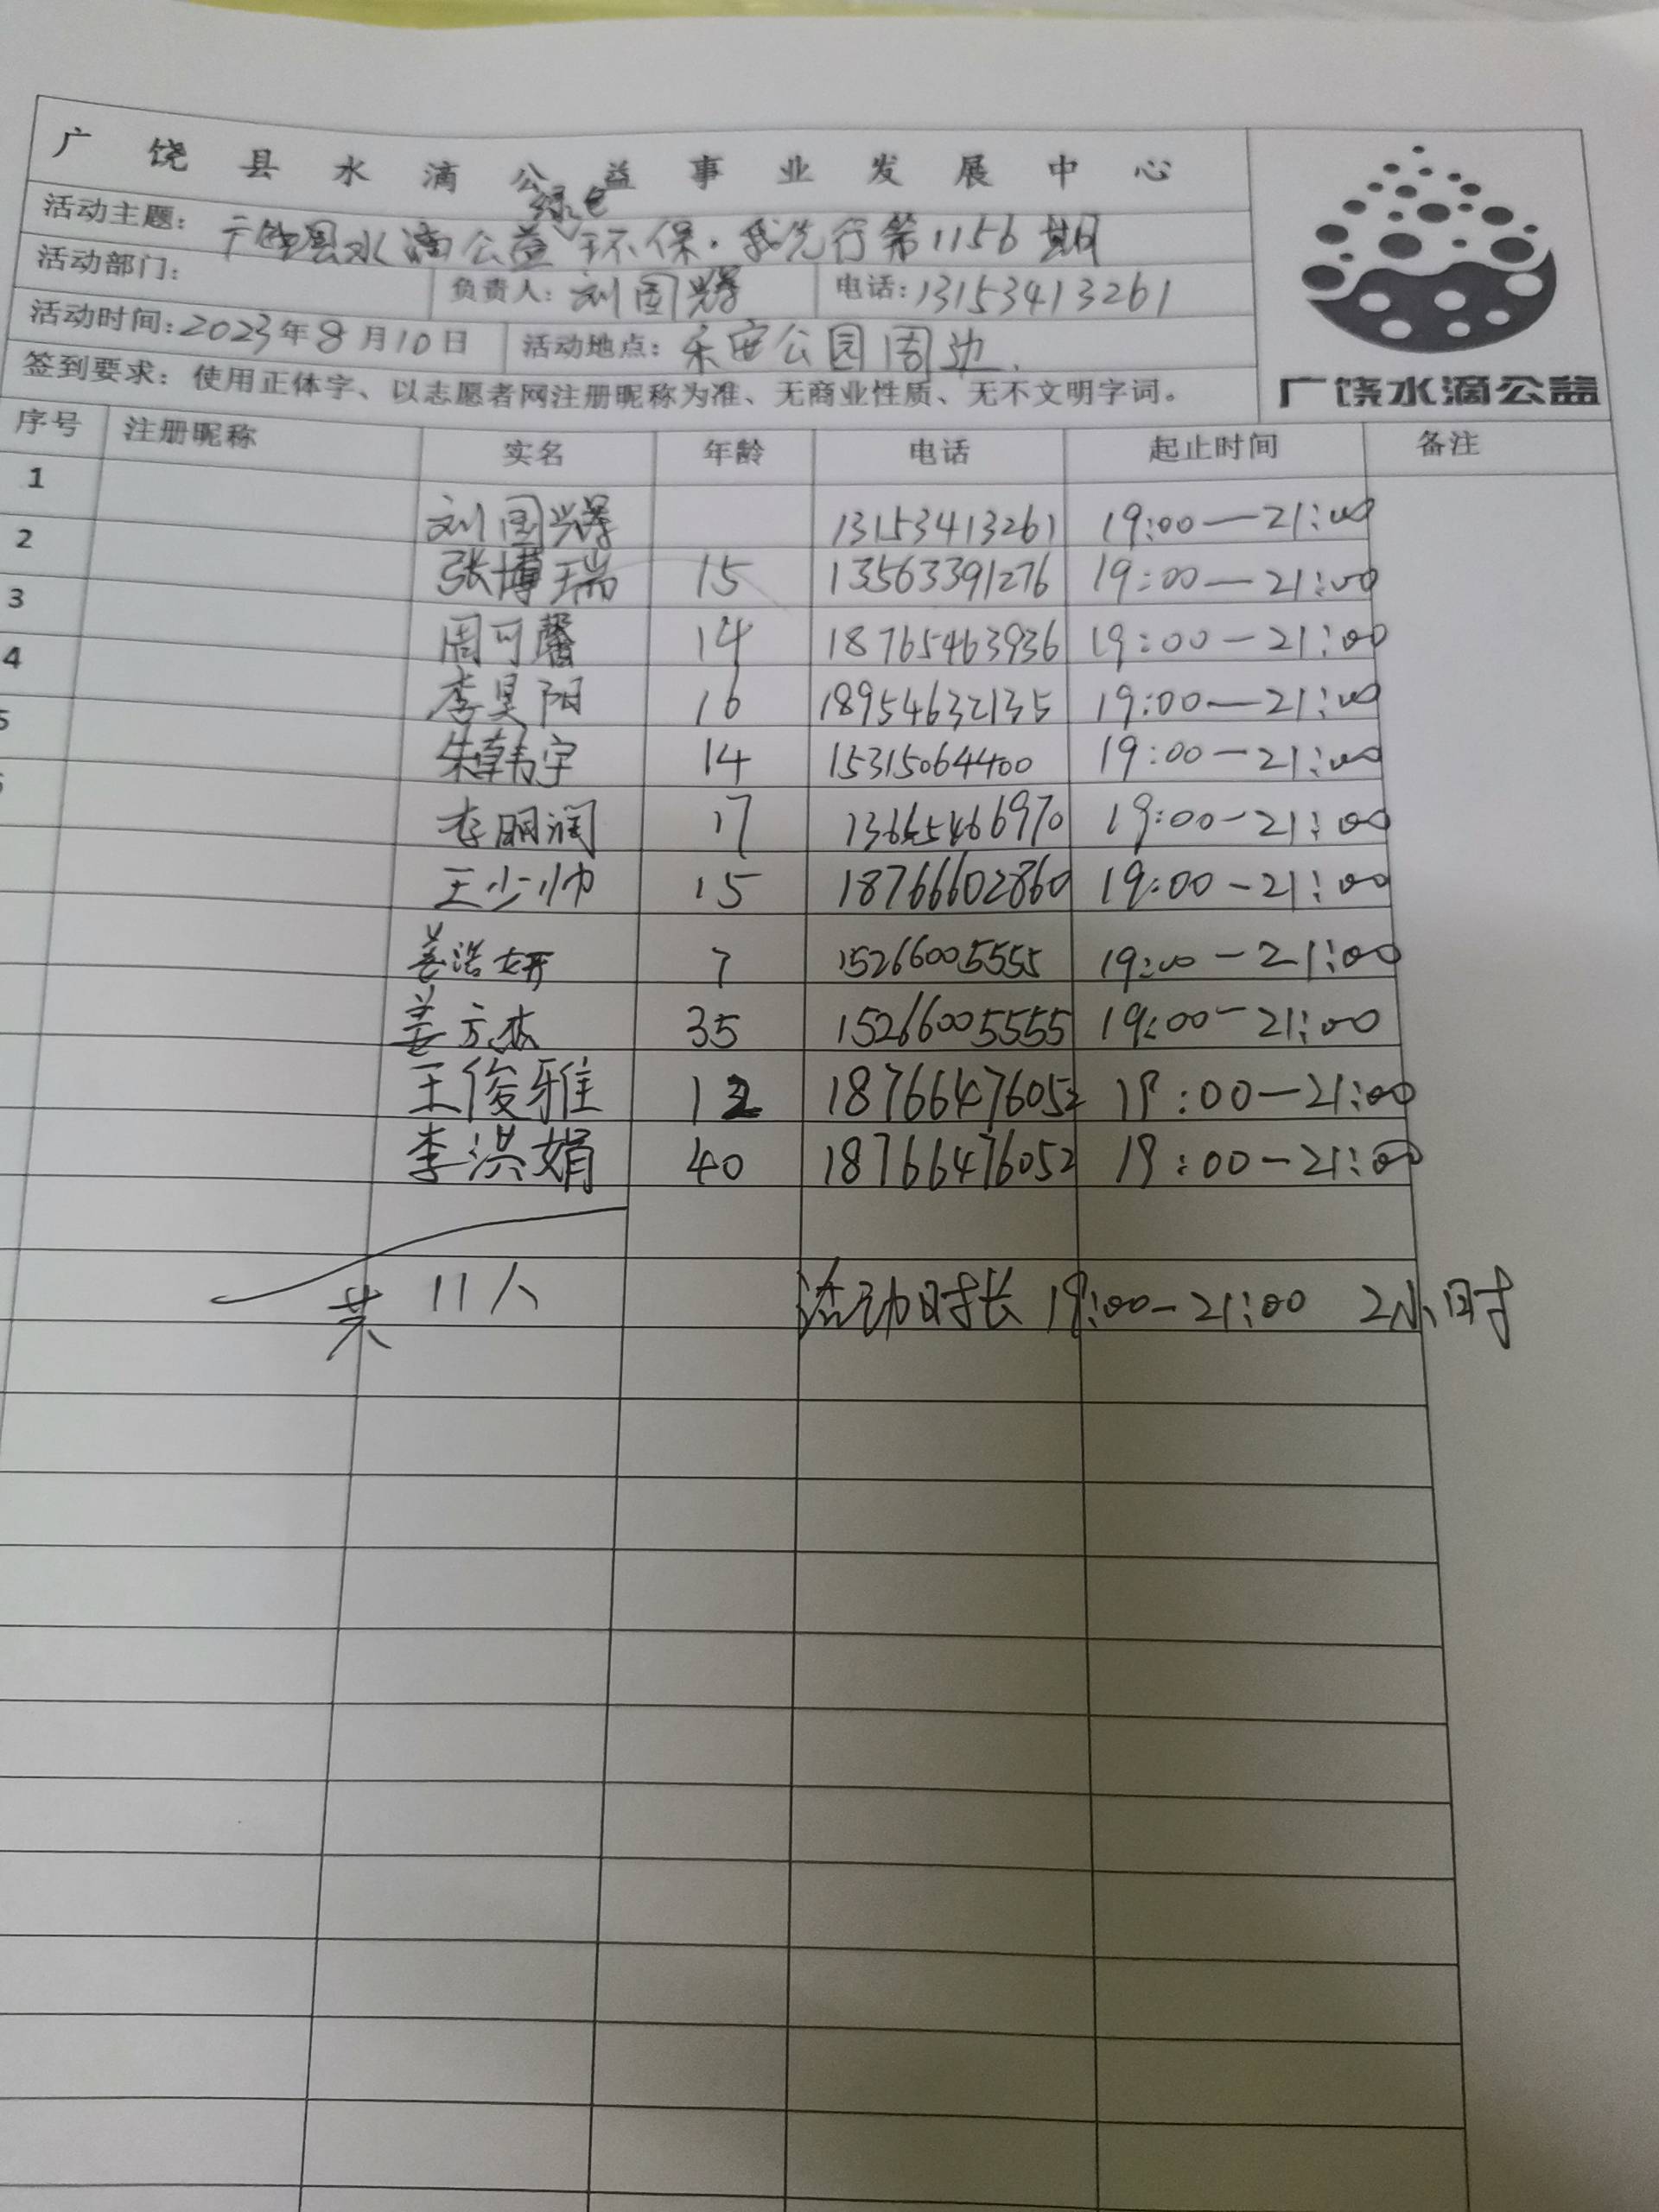 广饶县水滴公益事业发展中心
活动主题：广饶县水滴公益绿色环保·我先行第1156期
活动部门： 负责人：刘国兴 电话：13153413261
活动时间：2023年8月10日 活动地点：乐安公园周边.
签到要求：使用正体字、以志愿者网注册昵称为准、无商业性质、无不文明字词。
广饶水滴公益
序号 注册昵称 实名 年龄 电话 起止时间 备注
1 刘国兴 13153413261 19:00—21:00
2 张博瑞 15 13563391276 19:00—21:00
3 周可馨 14 18765463936 19:00—21:00
4 李昊阳 16 18954632135 19:00—21:00
5 朱韩宇 14 15315064400 19:00—21:00
李明润 17 19:00-21:00
王少帅 15 18766602860 19:00-21:00
姜浩妍 7 15266005555 19:00-21:00
姜方杰 35 15266005555 19:00-21:00
王俊雅 12 18766476052 19:00—21:00
李洪娟 40 18766476052 19:00-21:00
共 11人 活动时长 19:00-21:00 2小时